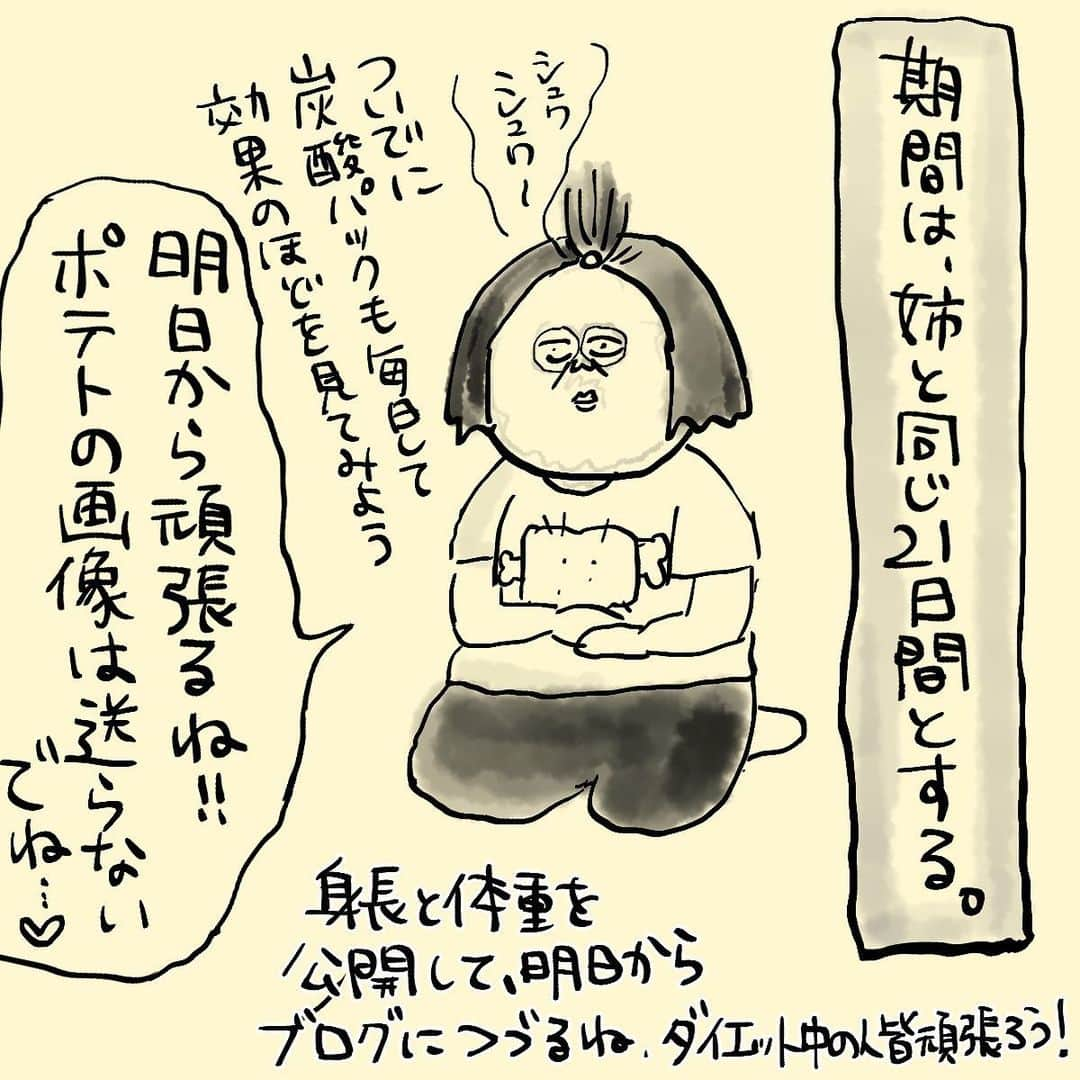 期間は、姉と同じ21日間とする。
シュワ
シュワ〜
ついでに
炭酸パックも毎日して
効果のほどを見てみよう
明日から頑張るね!!
ポテトの画像は送らない
でね…♡
身長と体重を
公開して、明日から
ブログにつづるね、ダイエット中の人皆頑張ろう！